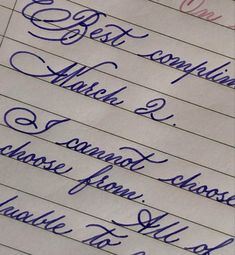 On
Best complim
March 2.
I cannot choose
choose from. All of
luable to